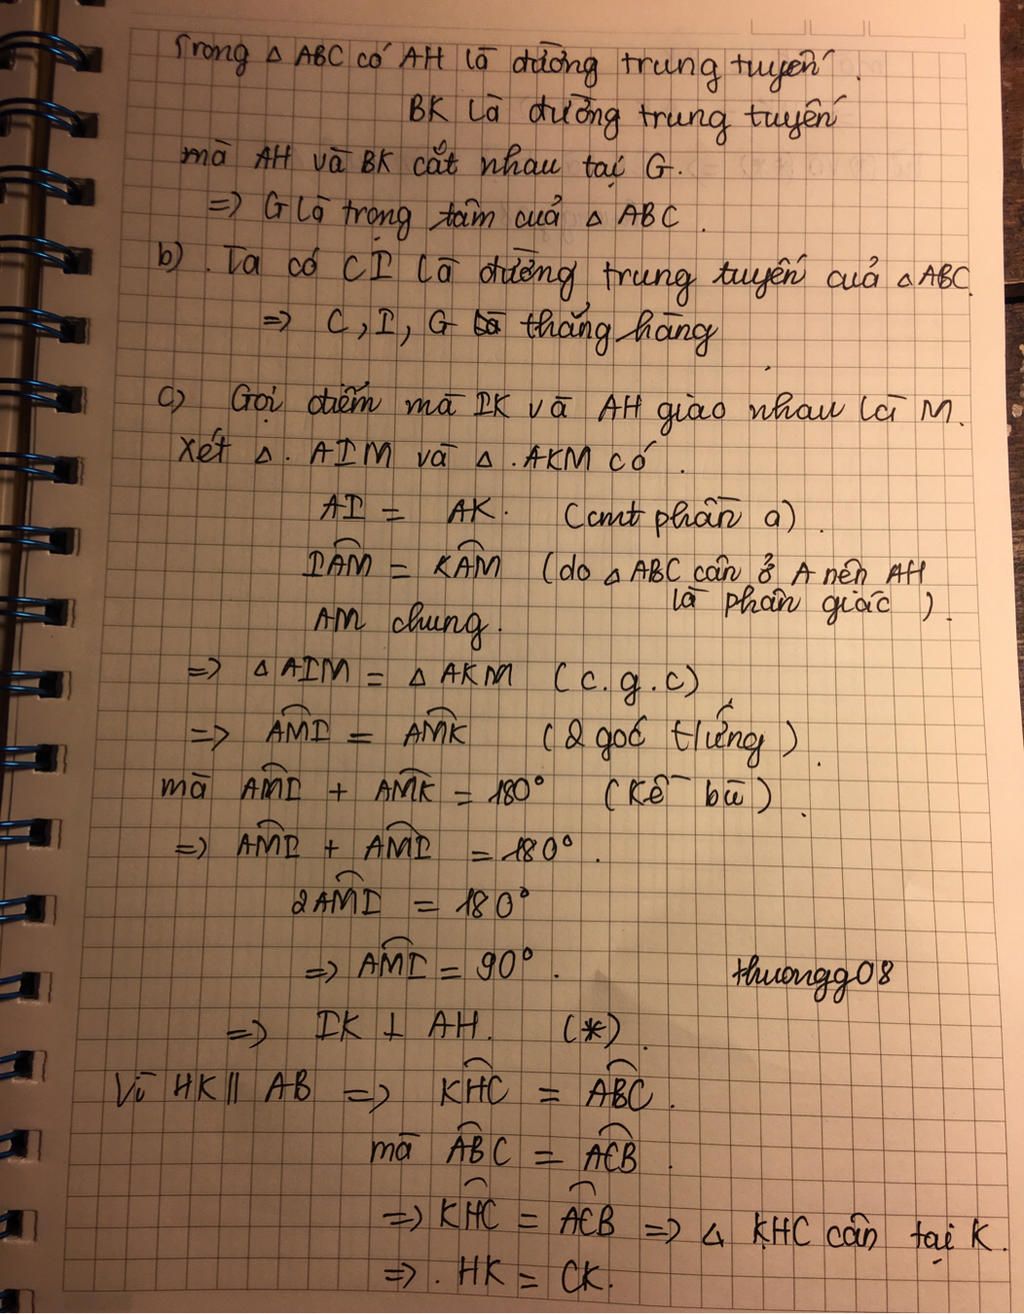 Trong △ ABC có AH là đường trung tuyến.
BK là đường trung tuyến
mà AH và BK cắt nhau tại G.
=> G là trọng tâm cuả △ ABC.
b) . Ta có CI là đường trung tuyến cuả △ABC.
=> C, I, G thẳng hàng
c) Gọi điểm mà IK và AH giao nhau là M.
Xét △. AIM và △ .AKM có.
AI = AK. (cmt phần a).
IAM̂ = KAM̂ (do △ ABC cân ở A nên AH
là phân giác).
AM chung.
=> △ AIM = △ AKM (c.g.c)
=> AMÎ = AMK̂ (2 góc tứ ứng).
mà AMÎ + AMK̂ = 180° (Kề bù).
=> AMÎ + AMÎ = 180°.
2AMÎ = 180°
=> AMÎ = 90°.
thuongg08
=> IK ⊥ AH. (*).
Vì HK || AB => KHĈ = ABĈ.
mà ABĈ = ACB̂.
=> KHĈ = ACB̂ => △ KHC cân tại K.
=> . HK = CK.